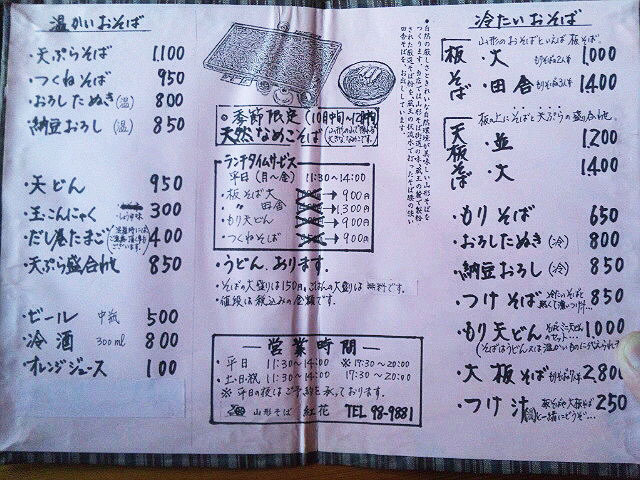 温かいおそば
・天ぷらそば 1,100
・つくねそば 950
・おろしたぬき(温) 800
・納豆おろし(温) 850
・天どん 950
・玉こんにゃく 300
・だし巻たまご 400
・天ぷら盛合わせ 850
・ビール 中瓶 500
・冷酒 300ml 800
・オレンジジュース 100
季節限定(10月中旬〜12月中旬)
天然なめこそば
ランチタイムサービス
平日(月〜金) 11:30〜14:00
・板そば大 → 900円
・田舎 → 1,300円
・もり天どん → 900円
・つくねそば → 900円
・うどん、あります。
・そばの大盛りは150円、ごはんの大盛は無料です。
・値段は税込みの金額です。
営業時間
・平日 11:30〜14:00 ※17:30〜20:00
・土・日・祝 11:30〜14:00 17:30〜20:00
※平日の夜はご予約を承っております。
山形そば 紅花 TEL 98-9881
冷たいおそば
山形のおそばといえば板そば。
板そば
・大 もりそば約2人半 1000
・田舎 もりそば約3人半 1400
板の上にそばと天ぷらの盛合わせ。
天板そば
・並 1,200
・大 1400
・もりそば 650
・おろしたぬき(冷) 800
・納豆おろし(冷) 850
・つけそば 850
・もり天どん そばとミニ天どんのセット… 1000
(そば・うどんは温かいものに代えられます)
・大板そば 2,800
・つけ汁 250